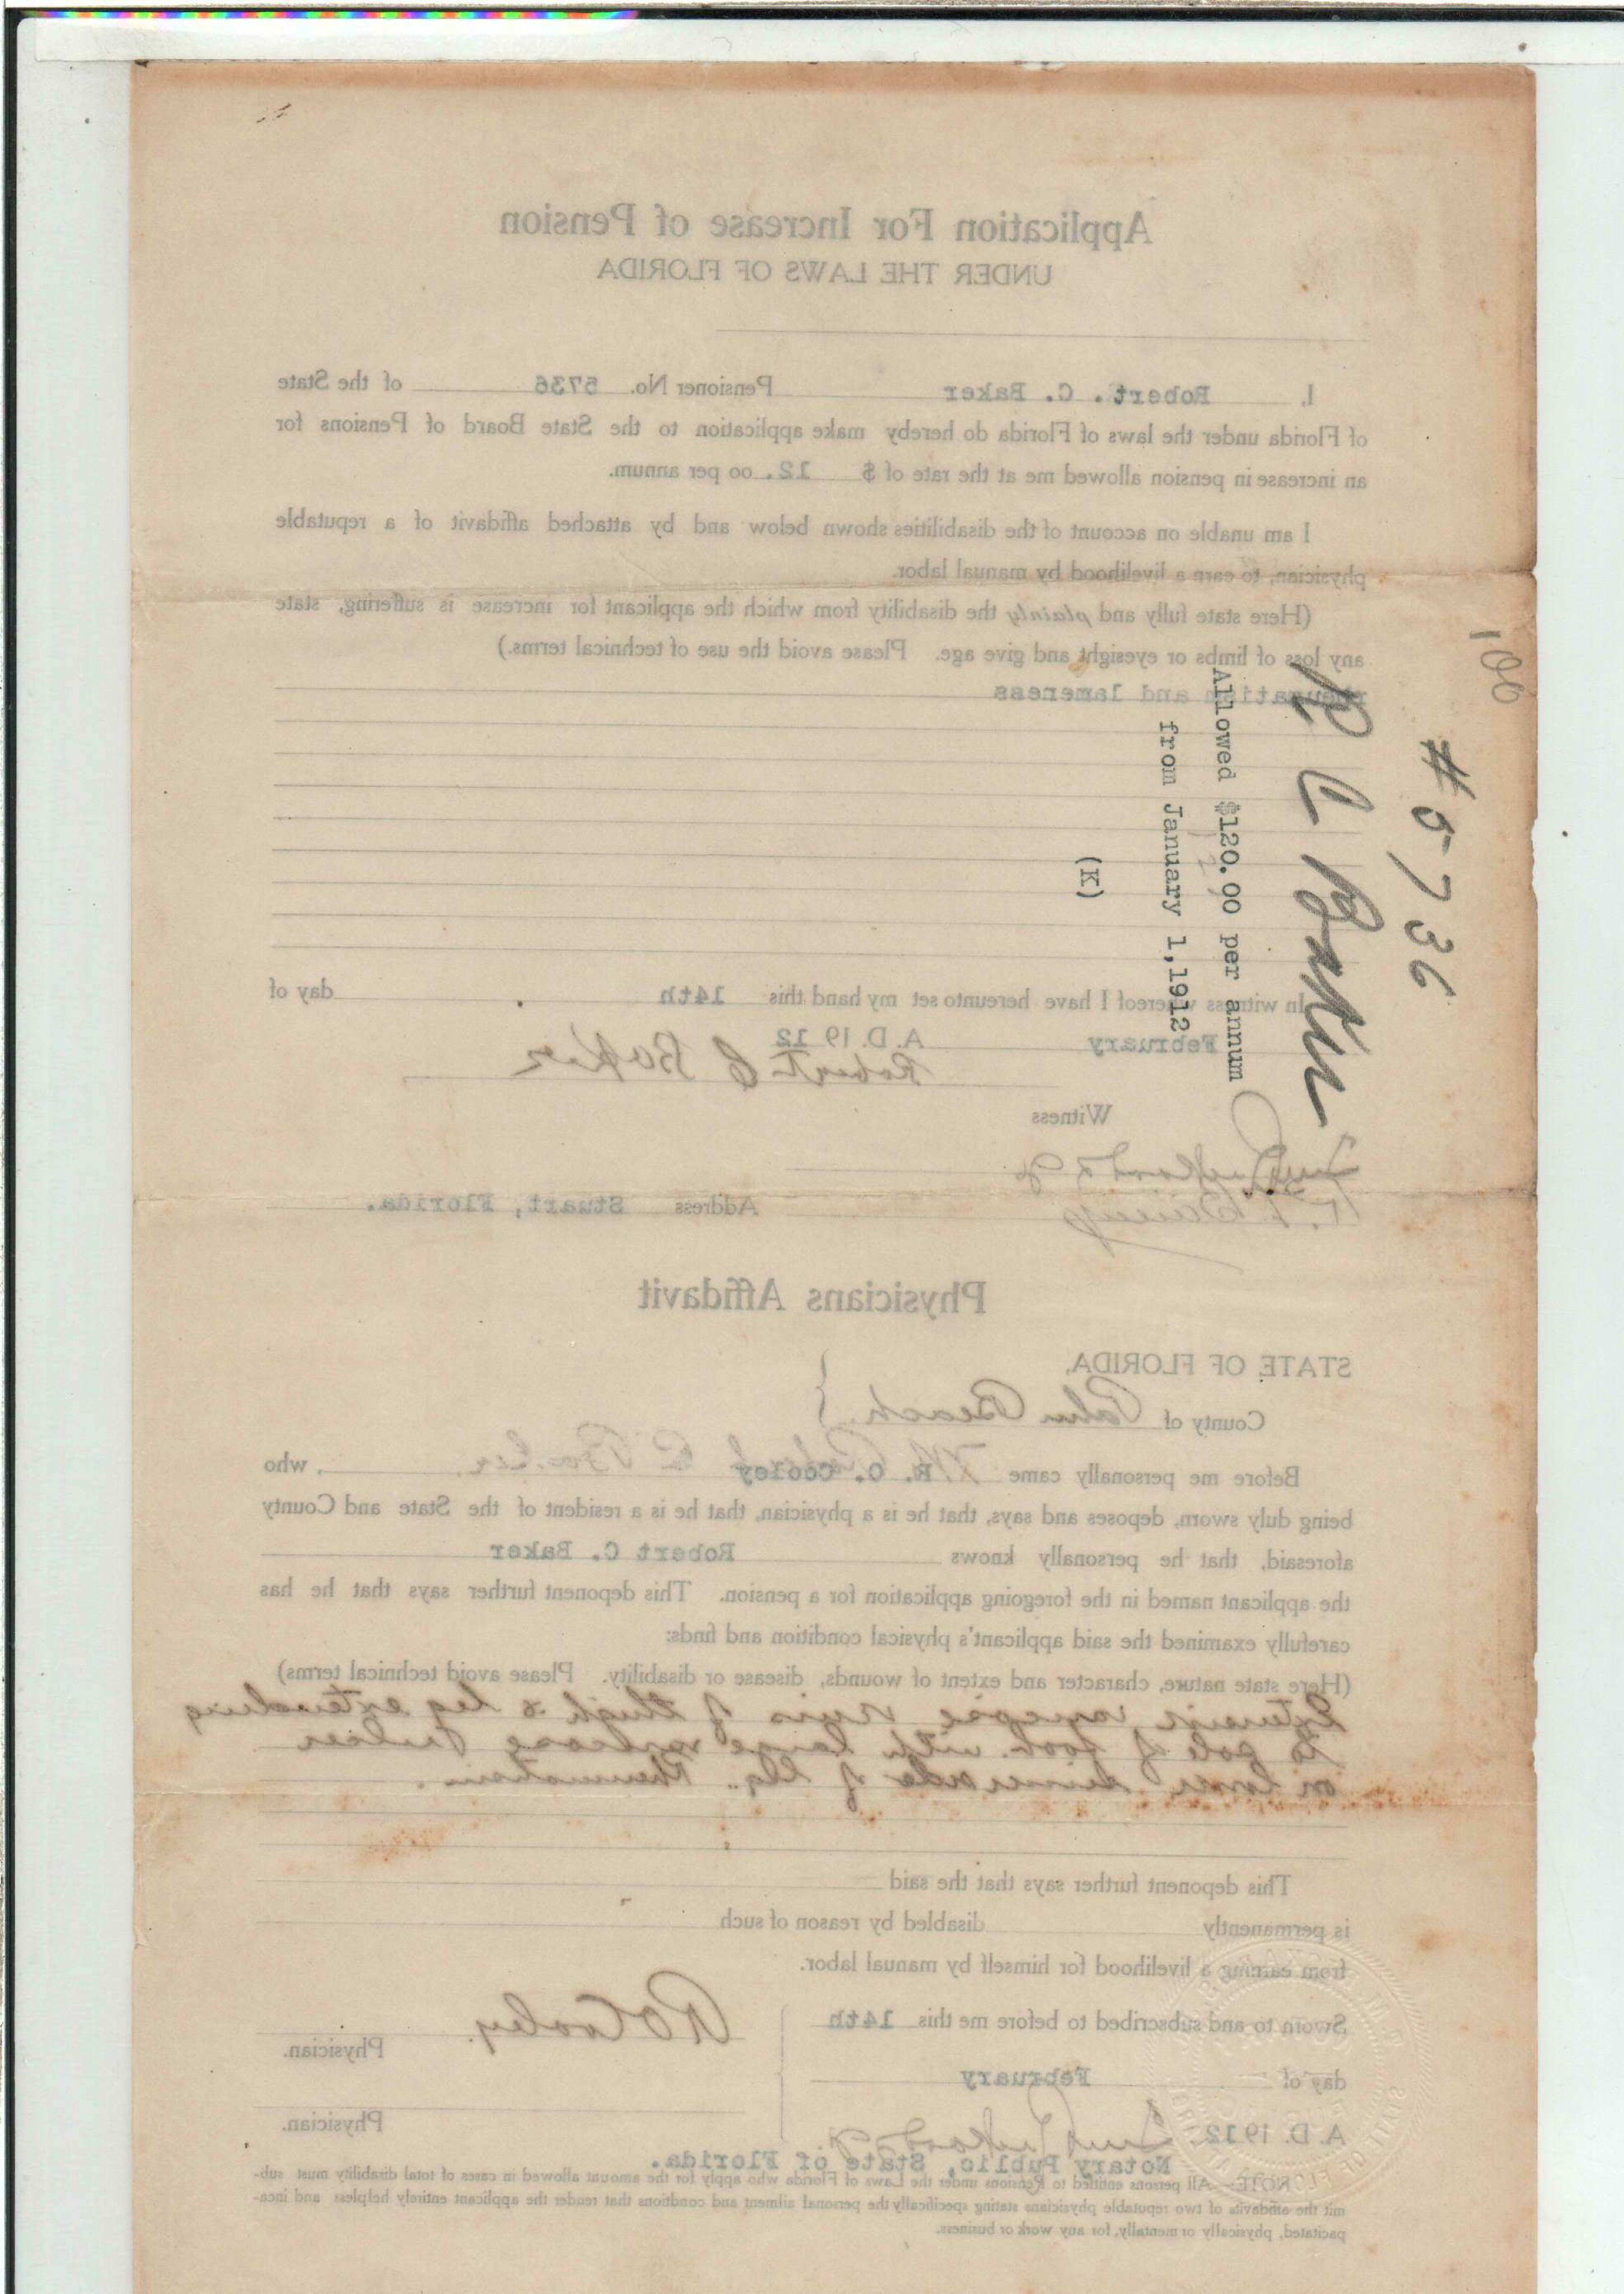 100
#5736
R C Baker
Allowed $120.00 per annum
from January 1,1912
(K)
Application For Increase of Pension
UNDER THE LAWS OF FLORIDA
I, Robert. C. Baker Pensioner No. 5736 of the State
of Florida under the laws of Florida do hereby make application to the State Board of Pensions for
an increase in pension allowed me at the rate of $ 12. oo per annum.
I am unable on account of the disabilities shown below and by attached affidavit of a reputable
physician, to earn a livelihood by manual labor.
(Here state fully and plainly the disability from which the applicant for increase is suffering, state
any loss of limbs or eyesight and give age. Please avoid the use of technical terms.)
rheumatism and lameness
In witness whereof I have hereunto set my hand this 14th day of
February A. D. 19 12
Robert C Baker
Witness
Address Stuart, Florida.
Physicians Affidavit
STATE OF FLORIDA,
County of Palm Beach }
Before me personally came R. O. Cooley , who
being duly sworn, deposes and says, that he is a physician, that he is a resident of the State and County
aforesaid, that he personally knows Robert C. Baker
the applicant named in the foregoing application for a pension. This deponent further says that he has
carefully examined the said applicant's physical condition and finds:
(Here state nature, character and extent of wounds, disease or disability. Please avoid technical terms)
Extensive varicose veins of thigh & leg extending
to sole of foot with large varicose ulcer
on lower inner side of leg. Rheumatism.
This deponent further says that the said
is permanently disabled by reason of such
from earning a livelihood for himself by manual labor.
Sworn to and subscribed to before me this 14th
R O Cooley.
Physician.
day of February
A. D. 1912.
Physician.
Notary Public, State of Florida.
NOTE—All persons entitled to Pensions under the Laws of Florida who apply for the amount allowed in cases of total disability must sub-
mit the affidavits of two reputable physicians stating specifically the personal ailment and conditions that render the applicant entirely helpless and inca-
pacitated, physically or mentally, for any work or business.